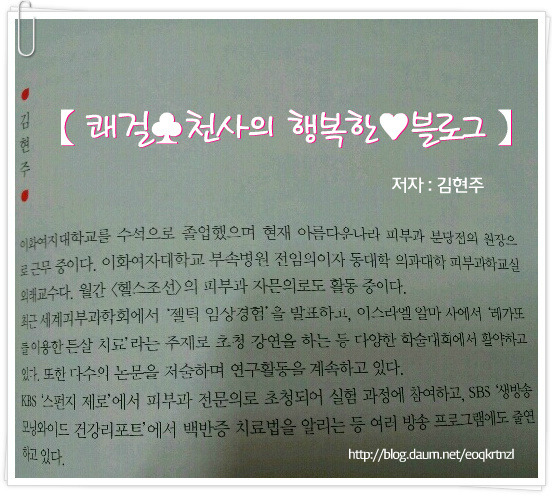 김현주
【 쾌걸♣천사의 행복한♥블로그 】
저자 : 김현주
이화여자대학교를 수석으로 졸업했으며 현재 아름다운나라 피부과 분당점의 원장으
로 근무 중이다. 이화여자대학교 부속병원 전임의이자 동대학 의과대학 피부과학교실
외래교수다. 월간 〈헬스조선〉의 피부과 자문의로도 활동 중이다.
최근 세계피부과학회에서 '젤틱 임상경험'을 발표하고, 이스라엘 알마 사에서 '레가또
를 이용한 튼살 치료'라는 주제로 초청 강연을 하는 등 다양한 학술대회에서 활약하고
있다. 또한 다수의 논문을 저술하며 연구활동을 계속하고 있다.
KBS '스펀지 제로'에서 피부과 전문의로 초청되어 실험 과정에 참여하고, SBS '생방송
모닝와이드 건강리포트'에서 백반증 치료법을 알리는 등 여러 방송 프로그램에도 출연
하고 있다.
http://blog.daum.net/eoqkrtnzl